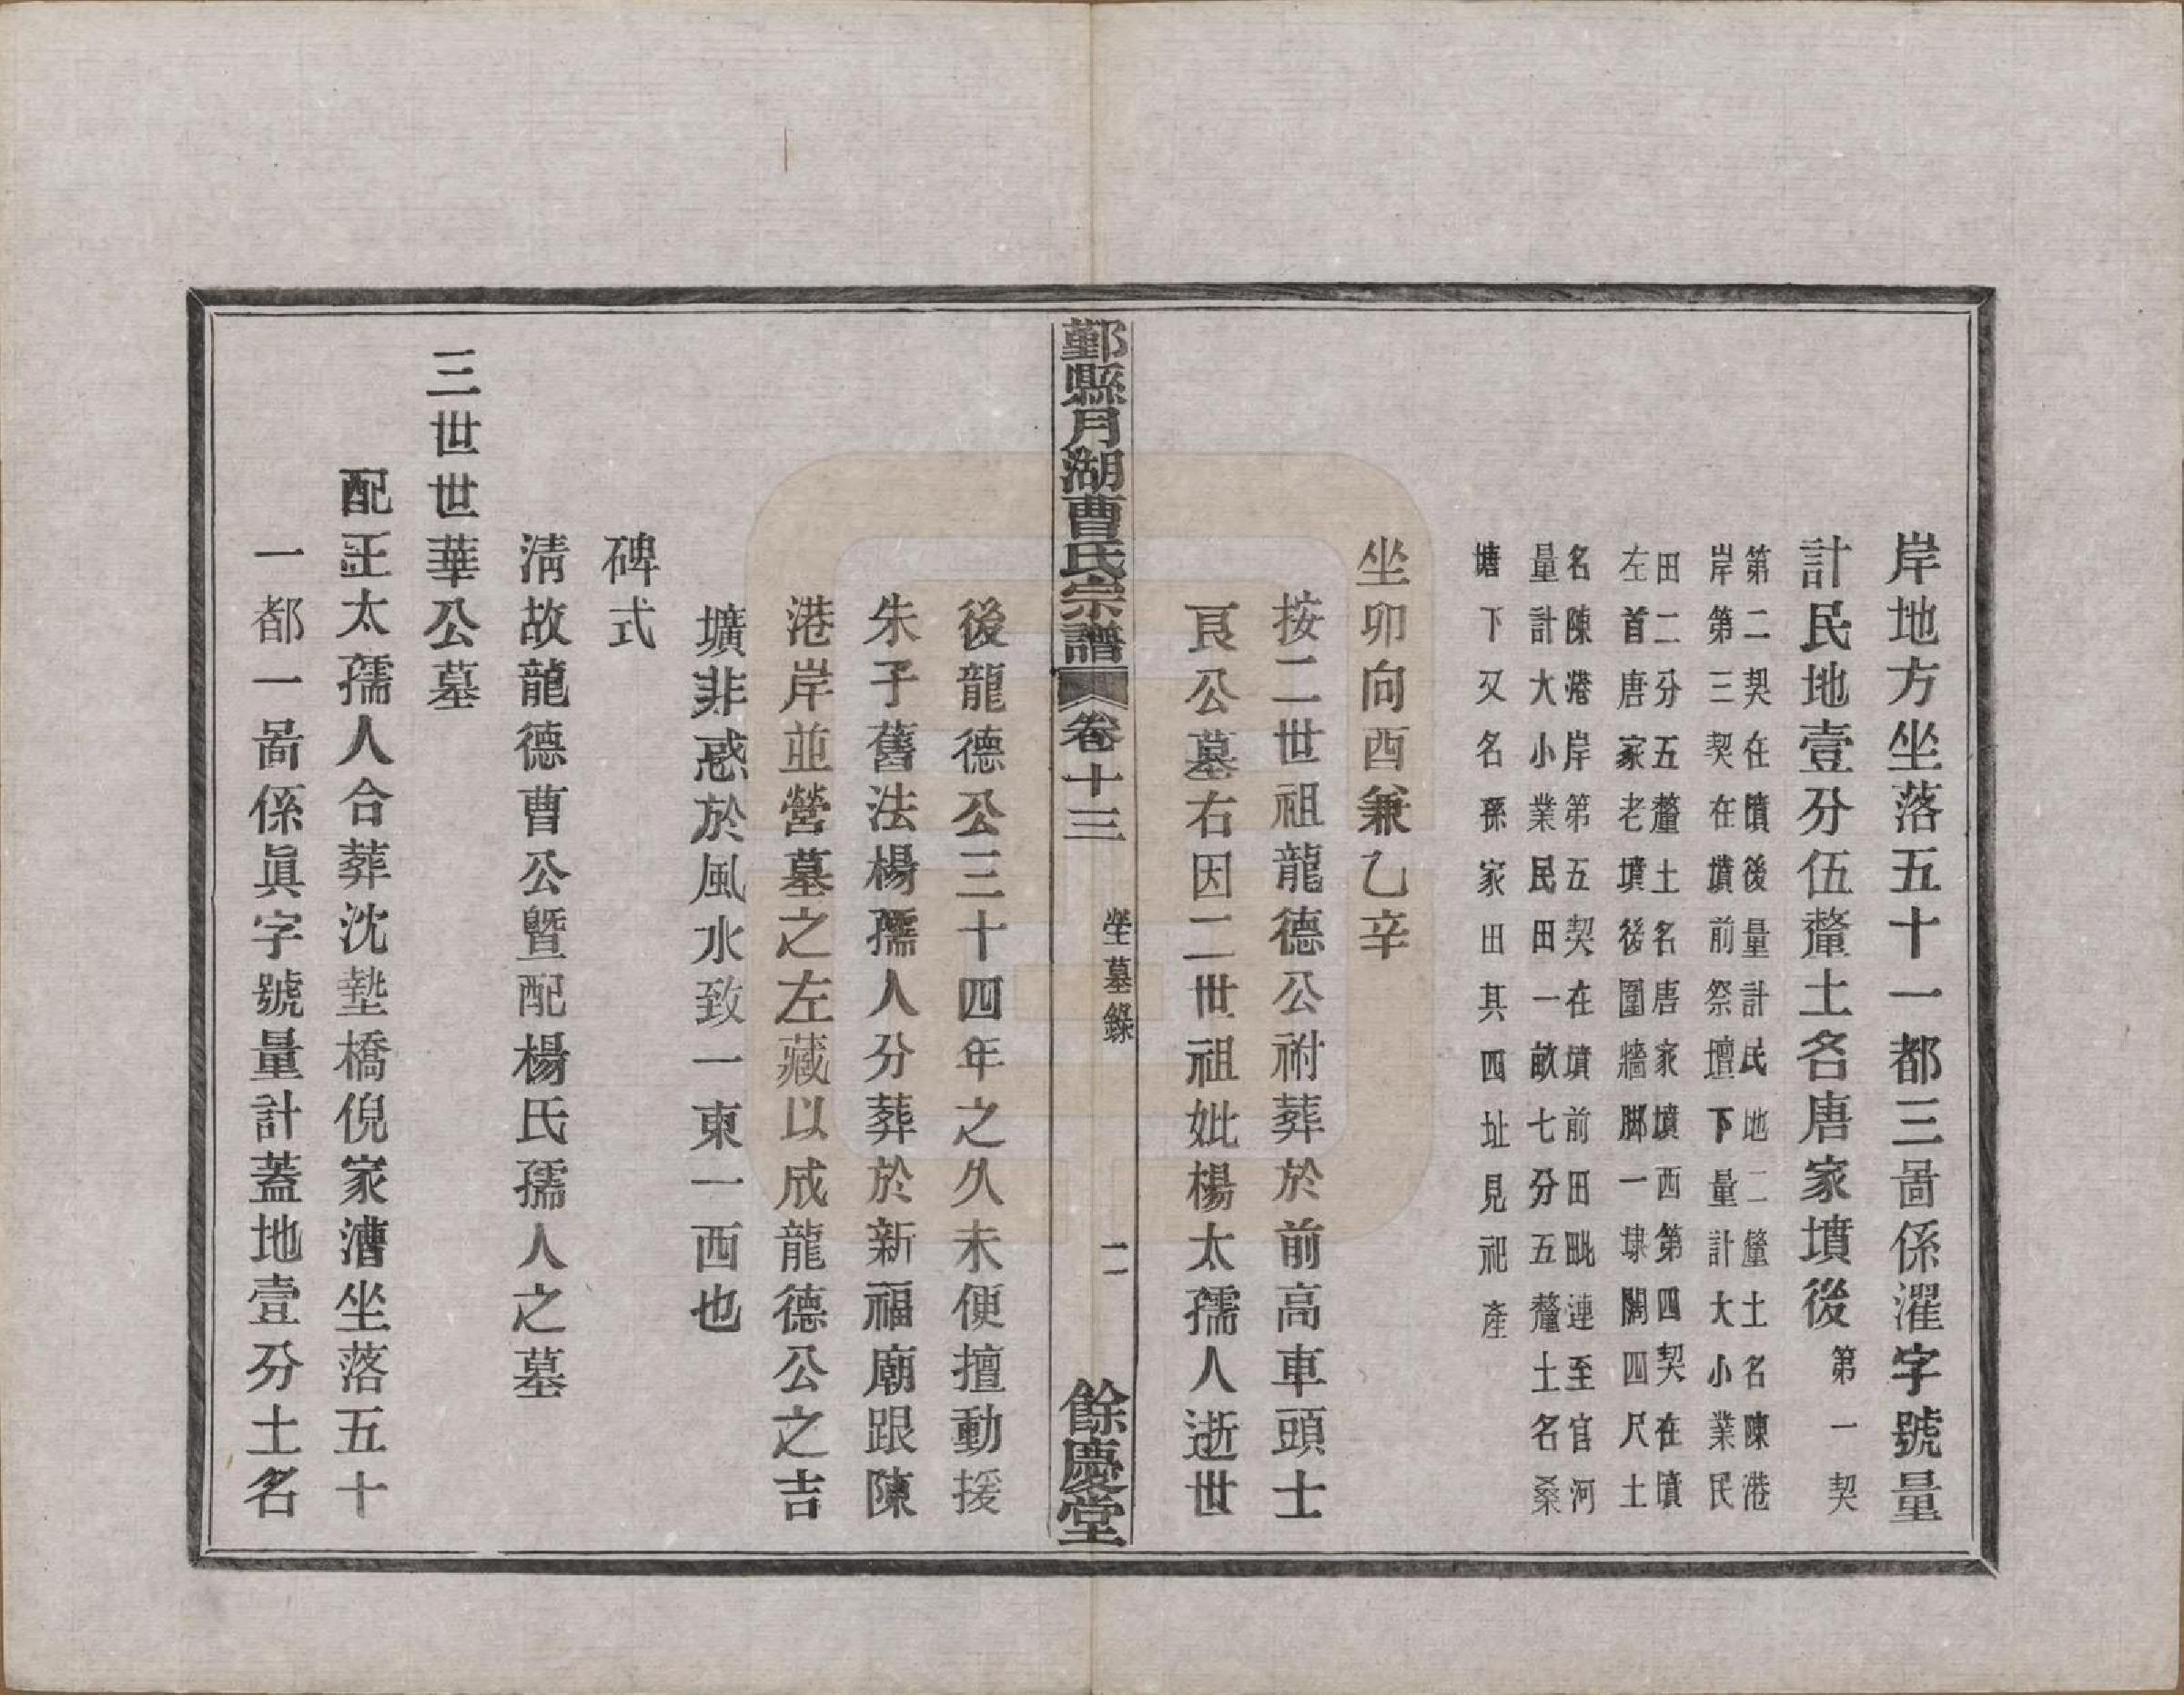 岸地方坐落五十一都三啚係濯字號量
計民地壹分伍釐土名唐家墳後第一契
第二契在墳後量計民地二釐土名陳港
岸第三契在墳前祭壇下量計大小業民
田二分五釐土名唐家墳西第四契在墳
左首唐家老墳後圍牆腳一埭闊四尺土
名陳港岸第五契在墳前田毗連至官河
量計大小業民田一畝七分五釐土名桑
塘下又名孫家田其四址見祀產
坐卯向酉兼乙辛
按二世祖龍德公祔葬於前高車頭士
良公墓右因二世祖妣楊太孺人逝世
鄞縣月湖曹氏宗譜 卷十三 塋墓錄 二 餘慶堂
後龍德公三十四年之久未便擅動援
朱子舊法楊孺人分葬於新福廟跟陳
港岸並營墓之左藏以成龍德公之吉
壙非惑於風水致一東一西也
碑式
清故龍德曹公暨配楊氏孺人之墓
三世世華公墓
配王太孺人合葬沈墊橋倪家漕坐落五十
一都一啚係眞字號量計蓋地壹分土名